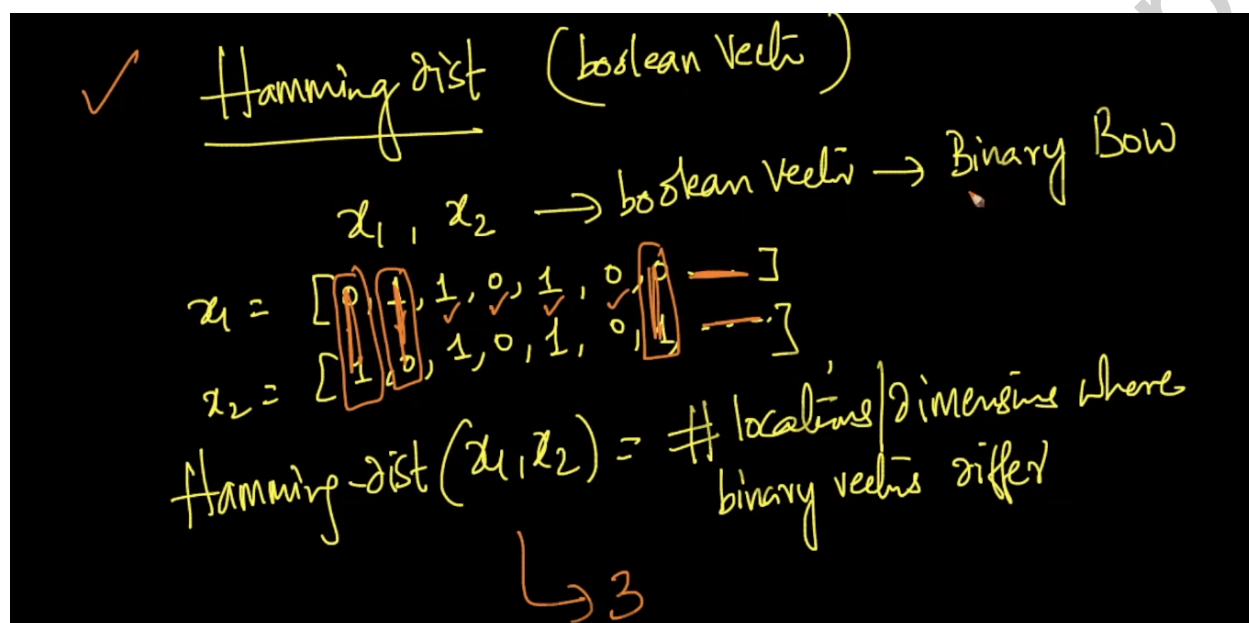 ✓ Hamming dist (boolean Vector)
x₁, x₂ → boolean Vector → Binary BOW
x₁ = [0, 1, 1, 0, 1, 0, 0 ---- ]
x₂ = [1, 0, 1, 0, 1, 0, 1, ----- ]
Hamming-dist(x₁, x₂) = # locations/dimensions where
binary vectors differ
↳ 3